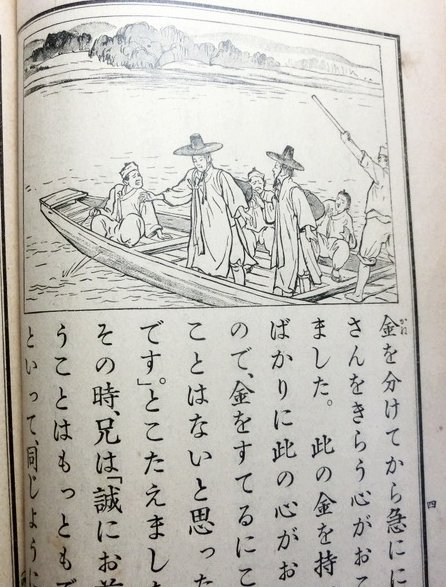 四
金を分けてから急にに
かね
さんをきらう心がおこ
ました。此の金を持
ばかりに此の心がお
ので、金をすてるにこ
ことはないと思った
です」。とこたえました
その時、兄は「誠にお前
うことはもっともで
といって、同じように